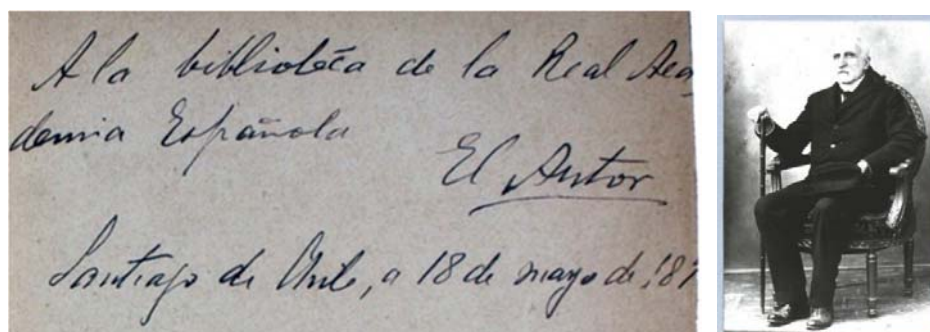 A la biblioteca de la Real Aca
demia Española
El Autor
Santiago de Chile, a 18 de mayo de 187